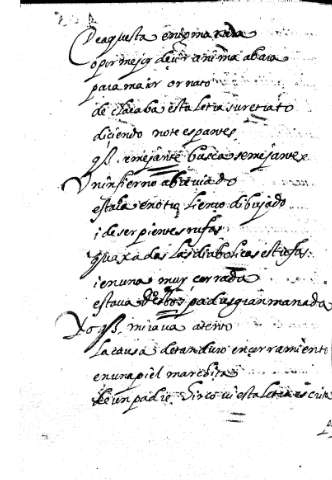 De aquesta enigmatada
o por mejor decir anima abaxa
para maior ornato
declaraba esta letra su retrato
diciendo no te espantes
q̃ semejante busca semejantes
Un infierno abreuiado
estaba en otro lienco dibujado
i de serpientes rufas
quaxadas las diabolicas estufas
i en una mui cerrada
estaua de los padres gran manada
Yo q̃ miraua atento
la causa de tan duro encerramiento
en una piel marchita
de un padre Sirco ui esta letra escrita